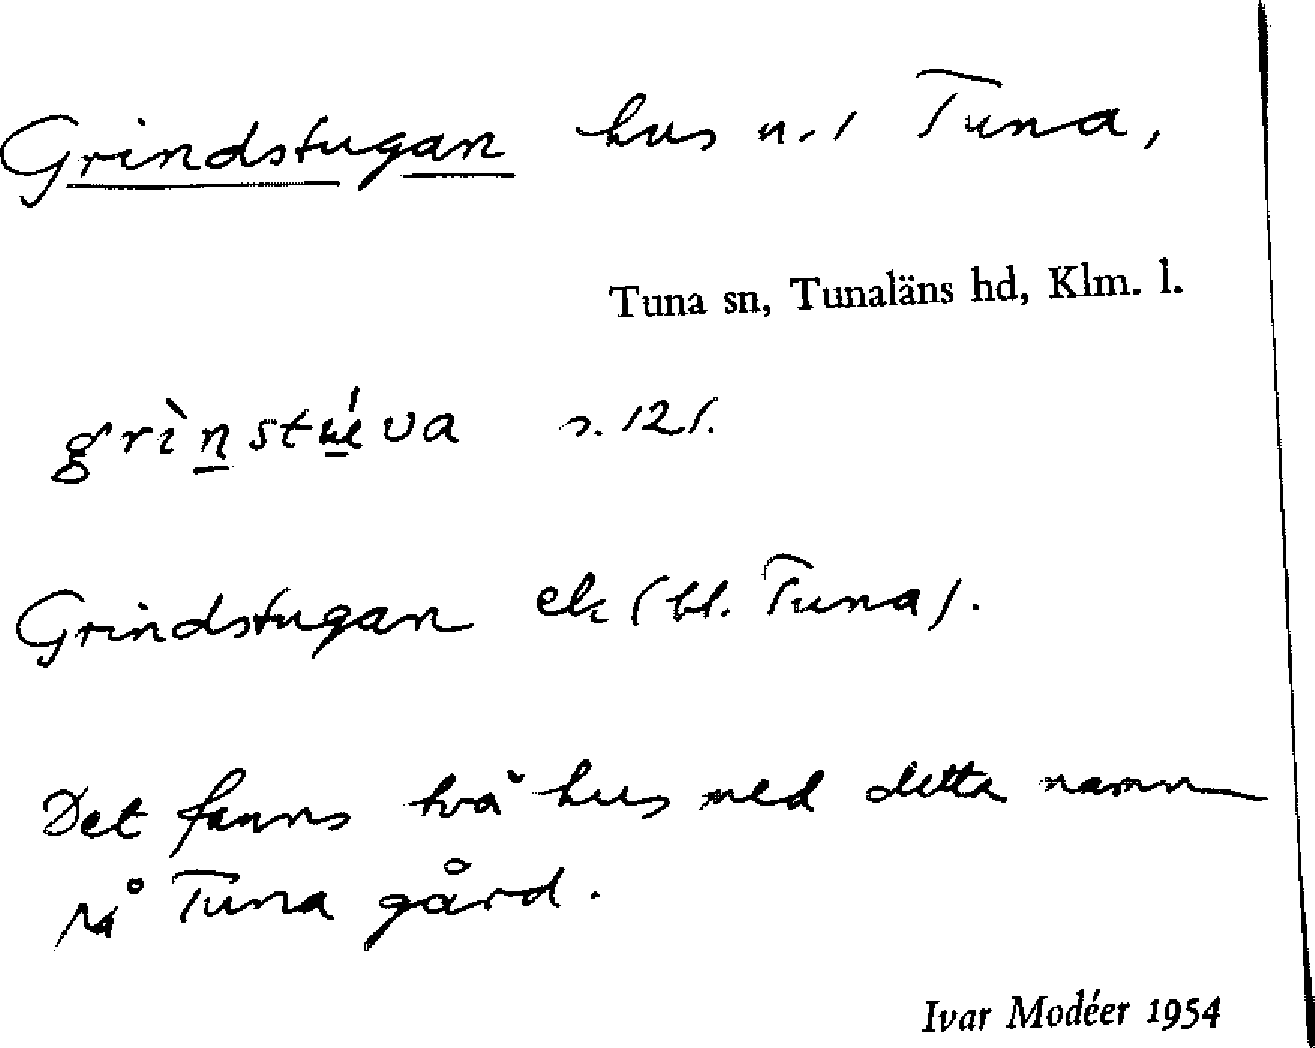 Grindstugan hus u.l Tuna,
Tuna sn, Tunaläns hd, Klm. l.
s. 121.
Grindstugan ek (bl. Tuna).
Det fanns två hus med detta namn
på Tuna gård.
Ivar Modéer 1954